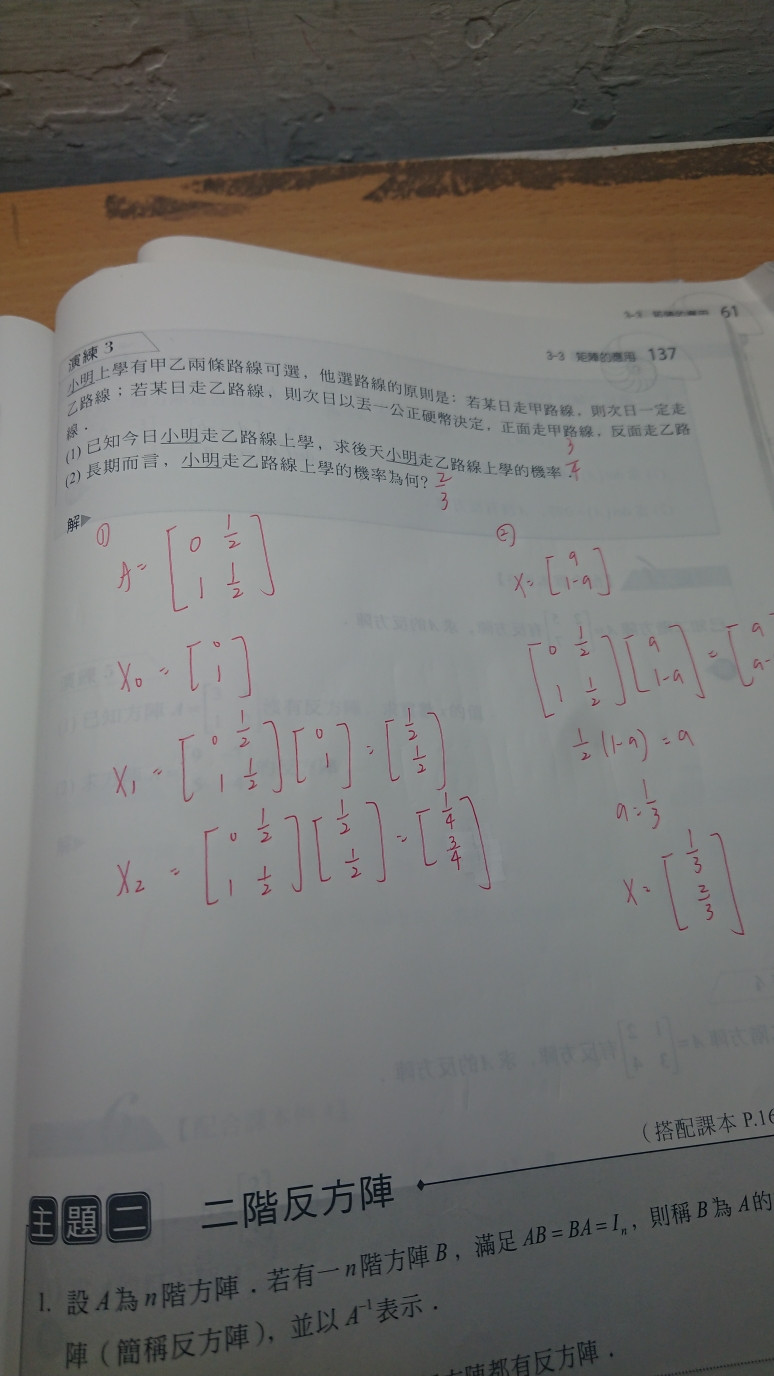 61
3-3 矩陣的應用 137
演練 3
小明上學有甲乙兩條路線可選，他選路線的原則是：若某日走甲路線，則次日一定走
乙路線；若某日走乙路線，則次日以丟一公正硬幣決定，正面走甲路線，反面走乙路
線．
(1) 已知今日小明走乙路線上學，求後天小明走乙路線上學的機率． 3/4
(2) 長期而言，小明走乙路線上學的機率為何? 2/3
解
①
A = [0 1/2; 1 1/2]
X₀ = [0; 1]
X₁ = [0 1/2; 1 1/2][0; 1] = [1/2; 1/2]
X₂ = [0 1/2; 1 1/2][1/2; 1/2] = [1/4; 3/4]
②
X = [a; 1-a]
[0 1/2; 1 1/2][a; 1-a] = [a; a-
1/2 (1-a) = a
a = 1/3
X = [1/3; 2/3]
(搭配課本 P.16
主題二 二階反方陣
1. 設 A 為 n 階方陣．若有一 n 階方陣 B，滿足 AB = BA = Iₙ，則稱 B 為 A 的
陣（簡稱反方陣），並以 A⁻¹ 表示．
方陣都有反方陣．